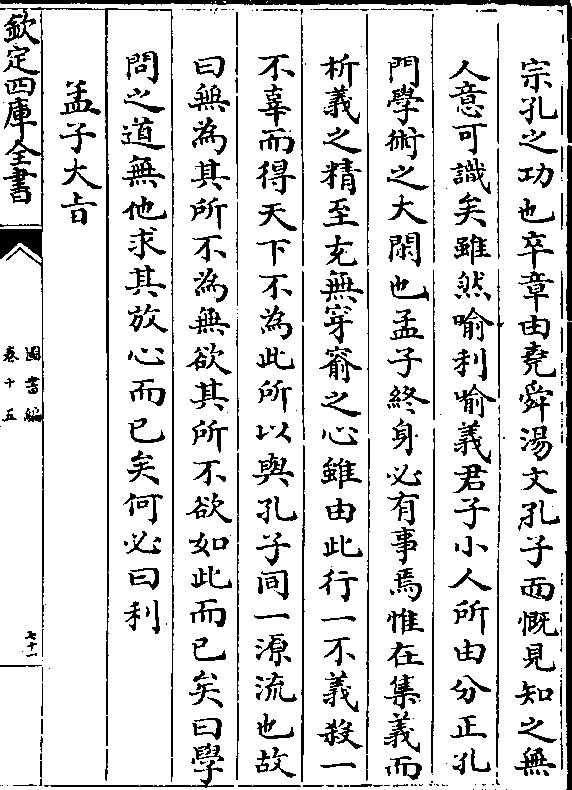 宗孔之功也卒章由堯舜湯文孔子而慨見知之無
人意可識矣雖然喻利喻義君子小人所由分正孔
門學術之大閑也孟子終身必有事焉惟在集義而
析義之精至充無穿窬之心雖由此行一不義殺一
不辜而得天下不為此所以與孔子同一源流也故
曰無為其所不為無欲其所不欲如此而已矣曰學
問之道無他求其放心而已矣何必曰利
孟子大旨
欽定四庫全書
圖書編
卷十五
七十一